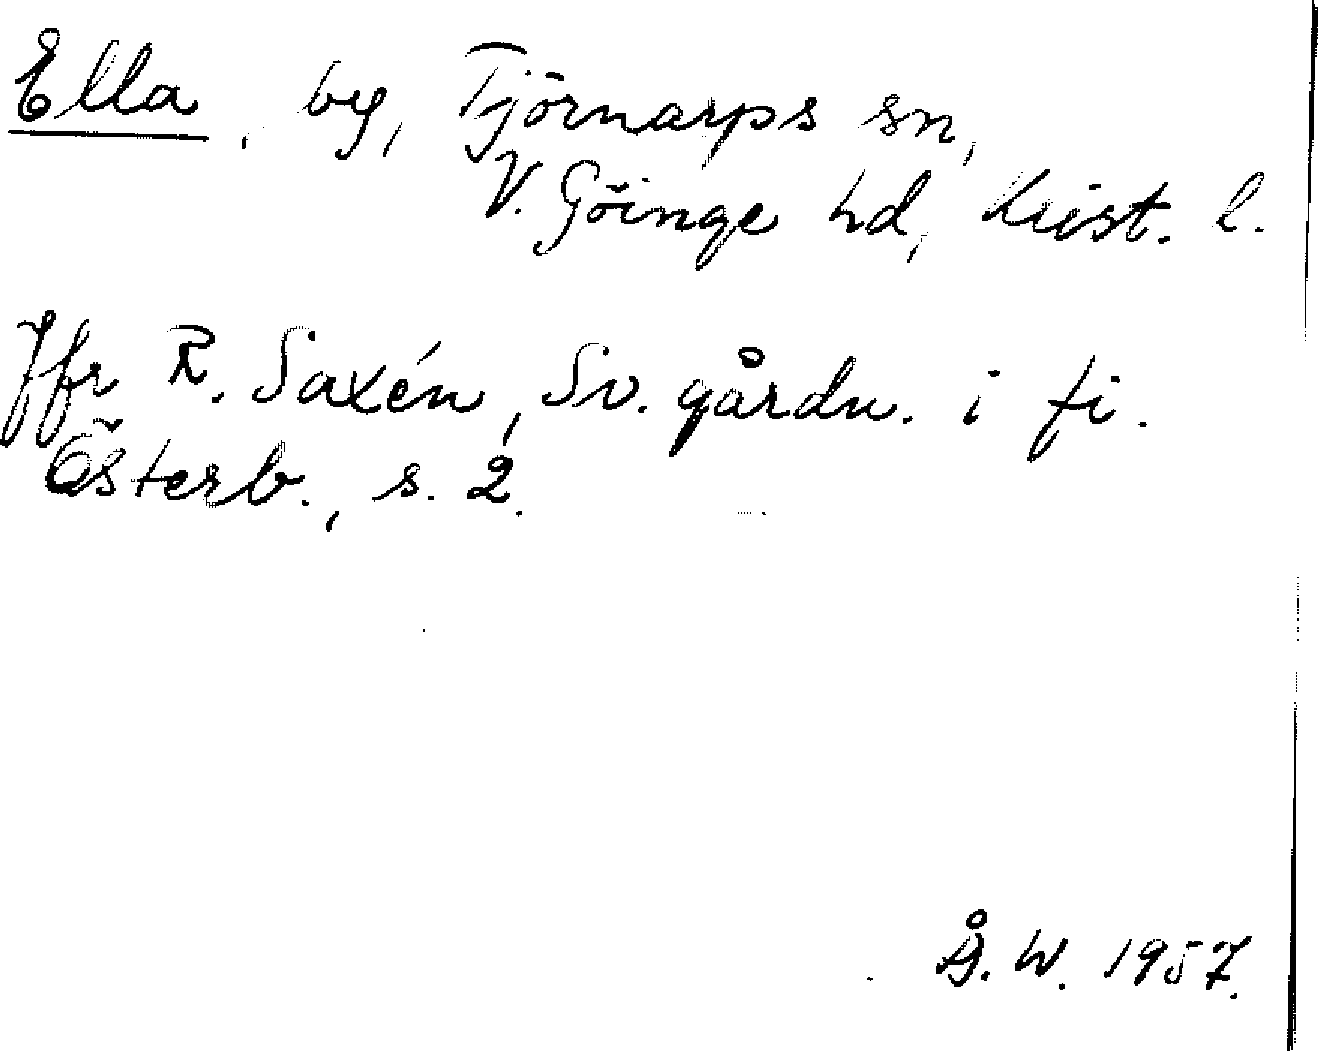 Ella, by, Tjörnarps sn,
V. Göinge hd, Krist. l.
Jfr R. Saxén, Sv. gårdn. i fi.
Österb., s. 2.
Å. W. 1957.